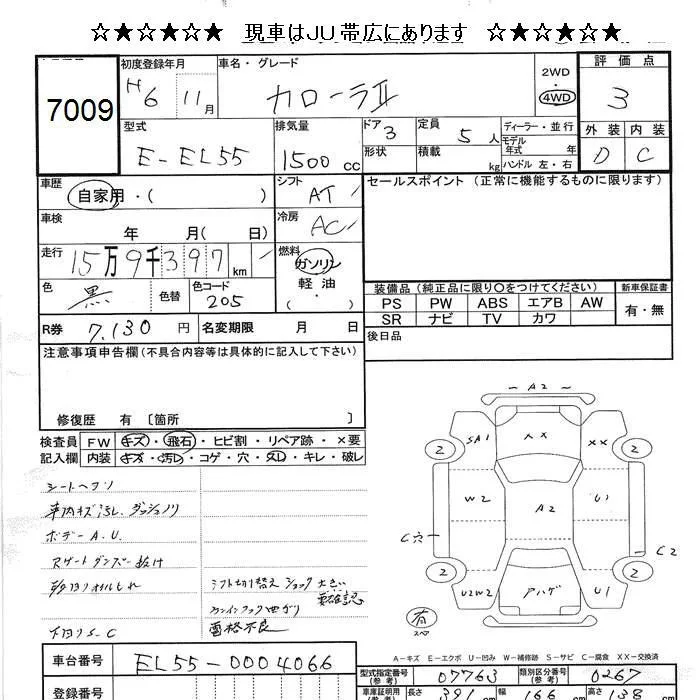 ☆★☆★☆★ 現車はJU帯広にあります ☆★☆★☆★
7009
初度登録年月 車名・グレード 2WD 評価点
H6 11月 カローラⅡ 4WD 3
型式 排気量 ドア 3 定員 5人 ディーラー・並行 外装 内装
E-EL55 1500cc 形状 積載 kg モデル年式 年 D C
ハンドル 左・右
車歴 自家用・( ) シフト AT セールスポイント(正常に機能するものに限ります)
車検 年 月( 日) 冷房 AC
走行 15万9千397km 燃料 ガソリン
軽油
・( )
色 黒 色替 色コード 205
装備品(純正品に限り○をつけてください) 新車保証書
PS PW ABS エアB AW 有・無
SR ナビ TV カワ
R券 7,130円 名変期限 月 日 後日品
注意事項申告欄(不具合内容等は具体的に記入して下さい)
修復歴 有〔箇所 〕
検査員 FW キズ・飛石・ヒビ割・リペア跡・×要
記入欄 内装 キズ・汚レ・コゲ・穴・スレ・キレ・破レ
シートヘタリ
車内キズ汚レ.ダッシュノリ
ボデーA.U.
スゲートダンパー抜け
下回りS.C
シフト切り替えショック大きい
要確認
雪格不良
A2
SA1 AX XX
2 2
W2 A2 U1
C穴 C2
2 2
U2W2 アハゲ U1
有
スペア
A-キズ E-エクボ U-凹み W-補修跡 S-サビ C-腐食 XX-交換済
車台番号 EL55-0004066
型式指定番号(参考) 07763 類別区分番号(参考) 0267
登録番号
車庫証明用(参考) 長さ 391 幅 166 高さ 138